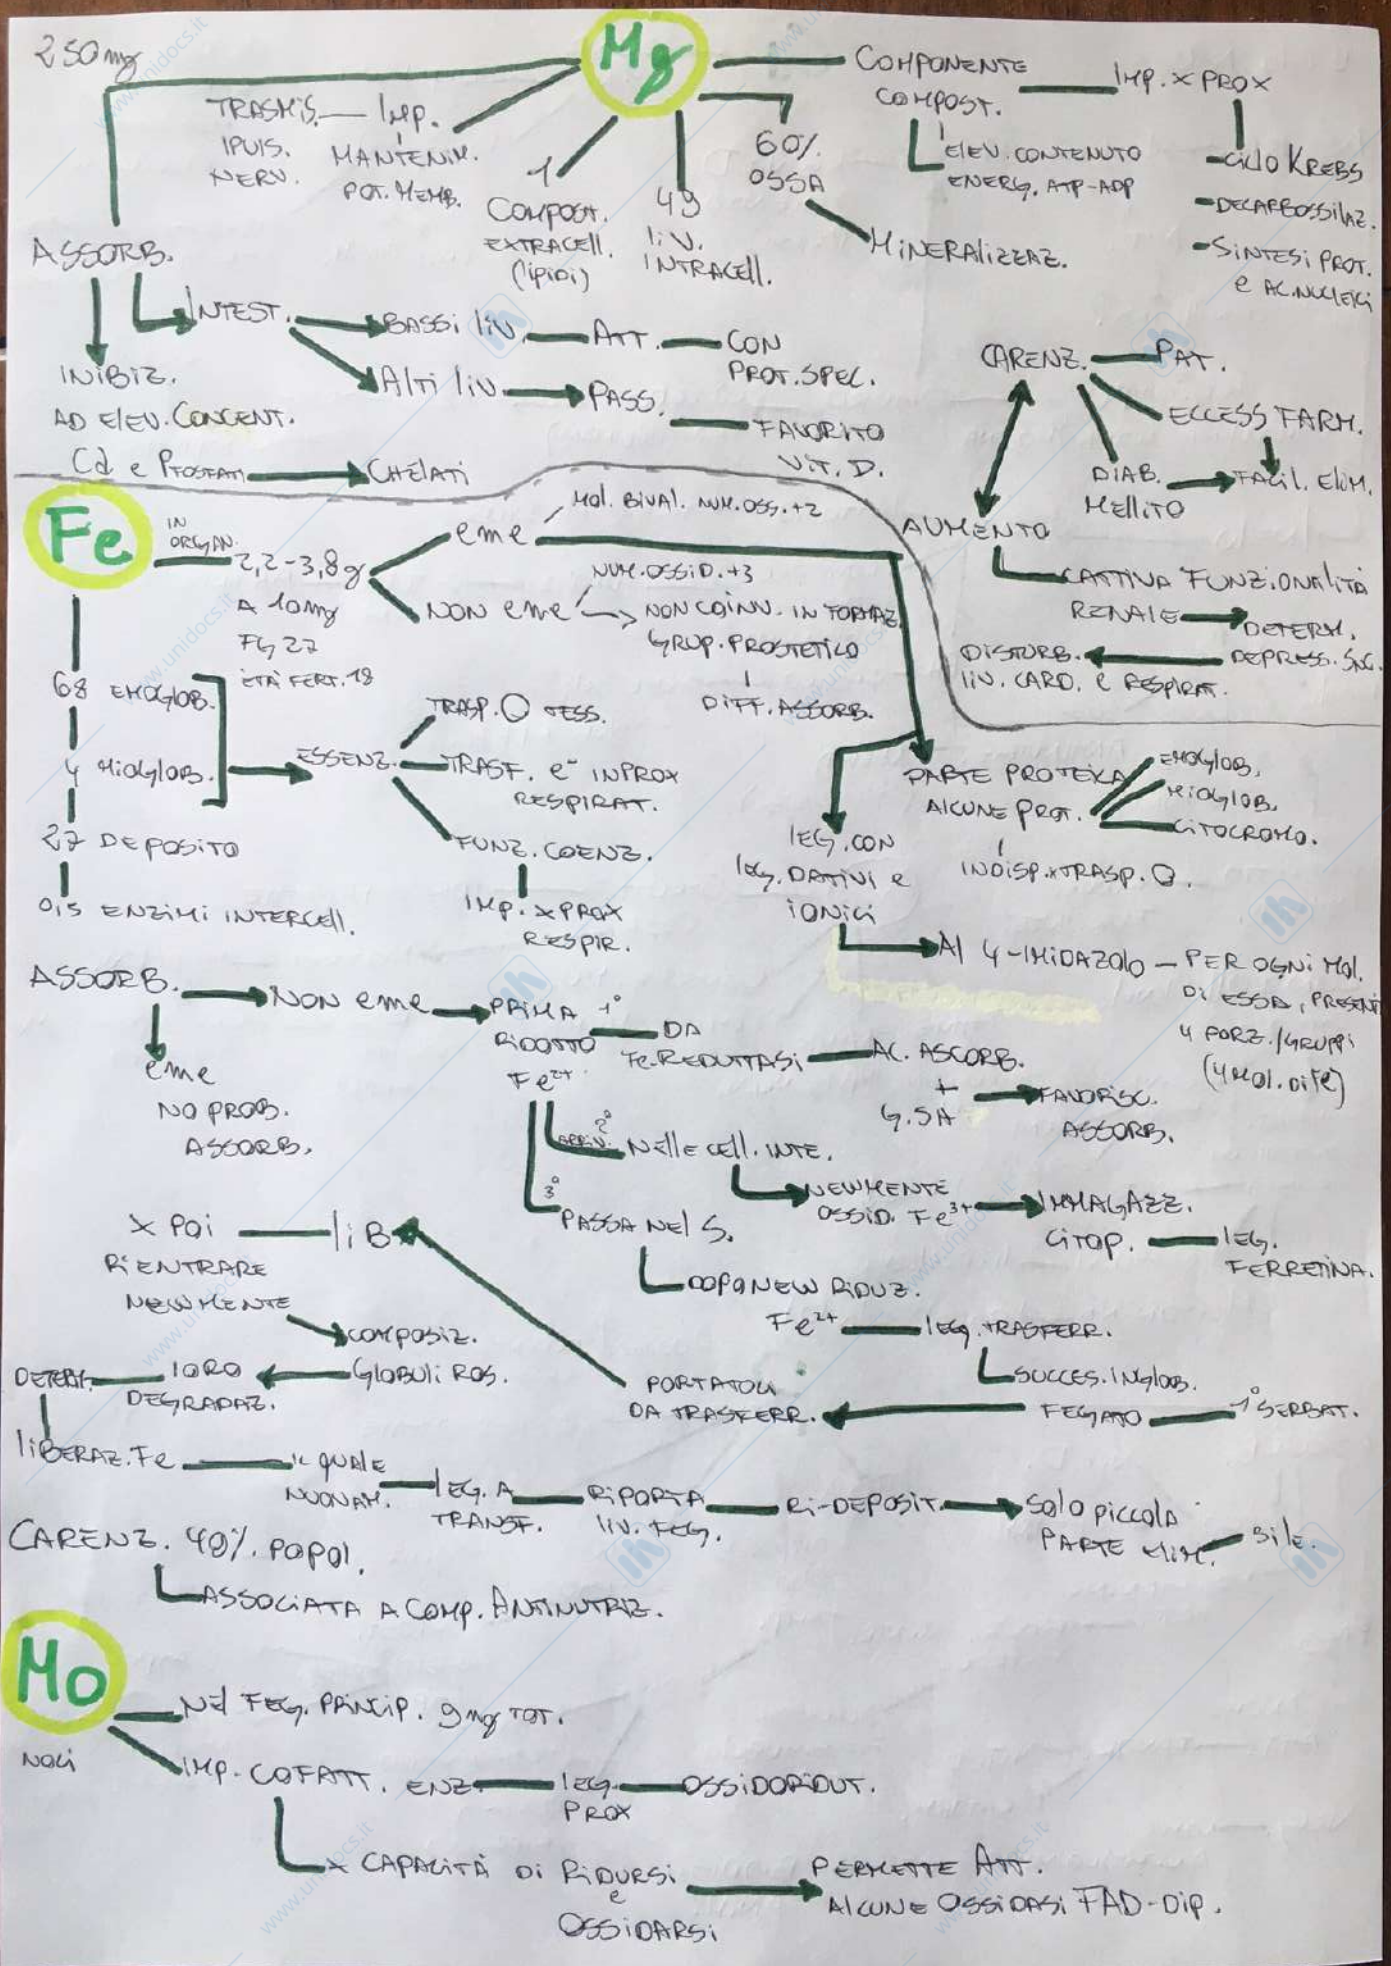 250mg
Mg
COMPONENTE
COMPOST.
IMP. x PROX
TRASMIS. — IMP.
IPUIS.
NERV.
MANTENIM.
POT. MEMB.
1
COMPOST.
EXTRACELL.
(lipidi)
49
liV.
INTRACELL.
60%
OSSA
MINERALIZZAZ.
ELEV. CONTENUTO
ENERG. ATP-ADP
- CICLO KREBS
- DECARBOSSILAZ.
- SINTESI PROT.
e AC. NUCLEICI
ASSORB.
INTEST.
BASSI liV.
ATT.
CON
PROT. SPEC.
ALTI liV.
PASS.
FAVORITO
VIT. D.
INIBIZ.
AD ELEV. CONCENT.
Cd e FOSFATI
CHELATI
CARENZ.
PAT.
ECCESS FARM.
DIAB.
MELLITO
FACIL. ELIM.
AUMENTO
CATTIVA FUNZIONALITÀ
RENALE
DETERM.
DEPRESS. SNC.
DISTURB.
liV. CARD. e RESPIRAT.
Fe
IN
ORGAN.
2,2-3,8g
A 10mg
FG 27
ETÀ FERT. 18
eme
MOL. BIVAL. NUM. OSS. +2
NON eme
NUM. OSSID. +3
NON COINV. IN FORMAZ.
GRUP. PROSTETICO
DIFF. ASSORB.
68 EMOGLOB.
4 MIOGLOB.
27 DEPOSITO
0,5 ENZIMI INTERCELL.
ESSENZ.
TRASP. O TESS.
TRASF. e- IN PROX
RESPIRAT.
FUNZ. COENZ.
IMP. x PROX
RESPIR.
PARTE PROTEICA
ALCUNE PROT.
EMOGLOB.
MIOGLOB.
CITOCROMO.
INDISP. x TRASP. O.
LEG. CON
LEG. DATIVI e
IONICI
Al 4-IMIDAZOLO — PER OGNI MOL.
DI ESSA, PRESENTI
4 PORZ./GRUPPI
(4 MOL. DI Fe)
ASSORB.
eme
NO PROB.
ASSORB.
NON eme
PRIMA 1°
RIDOTTO
Fe2+
DA
Fe-REDUTTASI
AC. ASCORB.
+
G.SA
FAVORISC.
ASSORB.
2°
ARRIV.
NELLE CELL. INTE.
NEWMENTE
OSSID. Fe3+
IMMAGAZZ.
CITOP.
LEG.
FERRETINA.
3°
PASSA NEL S.
DOPO NEW RIDUZ.
Fe2+
LEG. TRASFERR.
SUCCES. INGLOB.
FEGATO
1° SERBAT.
PORTATOLI
DA TRASFERR.
liB
x POI
RIENTRARE
NEWMENTE
COMPOSIZ.
GLOBULI ROS.
LORO
DEGRADAZ.
DETERM.
LIBERAZ. Fe
IL QUALE
NUOVAM.
LEG. A
TRANSF.
RIPORTA
LIV. FEG.
RI-DEPOSIT.
SOLO PICCOLA
PARTE ELIM.
BILE.
CARENZ. 40% POPOL.
ASSOCIATA A COMP. ANTINUTRIZ.
Mo
NOCI
NEL FEG. PRINCIP. 9mg TOT.
IMP. COFATT. ENZ.
LEG.
PROX
OSSIDORIDUT.
x CAPACITÀ DI RIDURSI
e
OSSIDARSI
PERMETTE ATT.
ALCUNE OSSIDASI FAD-DIP.
www.unidocs.it